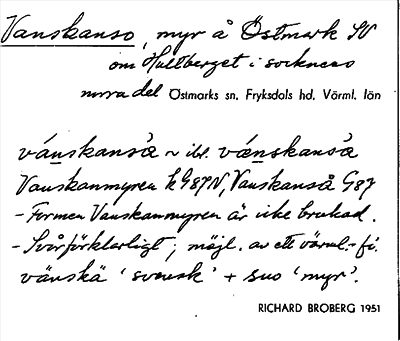 Vanskanso, myr å Östmark SV
om Hultberget i socknens
norra del Östmarks sn. Fryksdals hd. Värml. län
vánskanså ~ ibl. vǽnskanså
Vanskanmyren k G87N, Vanskanså G87
- Formen Vanskanmyren är icke brukad.
- Svårförklarligt; möjl. av ett värml.-fi.
vänskä 'svensk' + suo 'myr'.
RICHARD BROBERG 1951